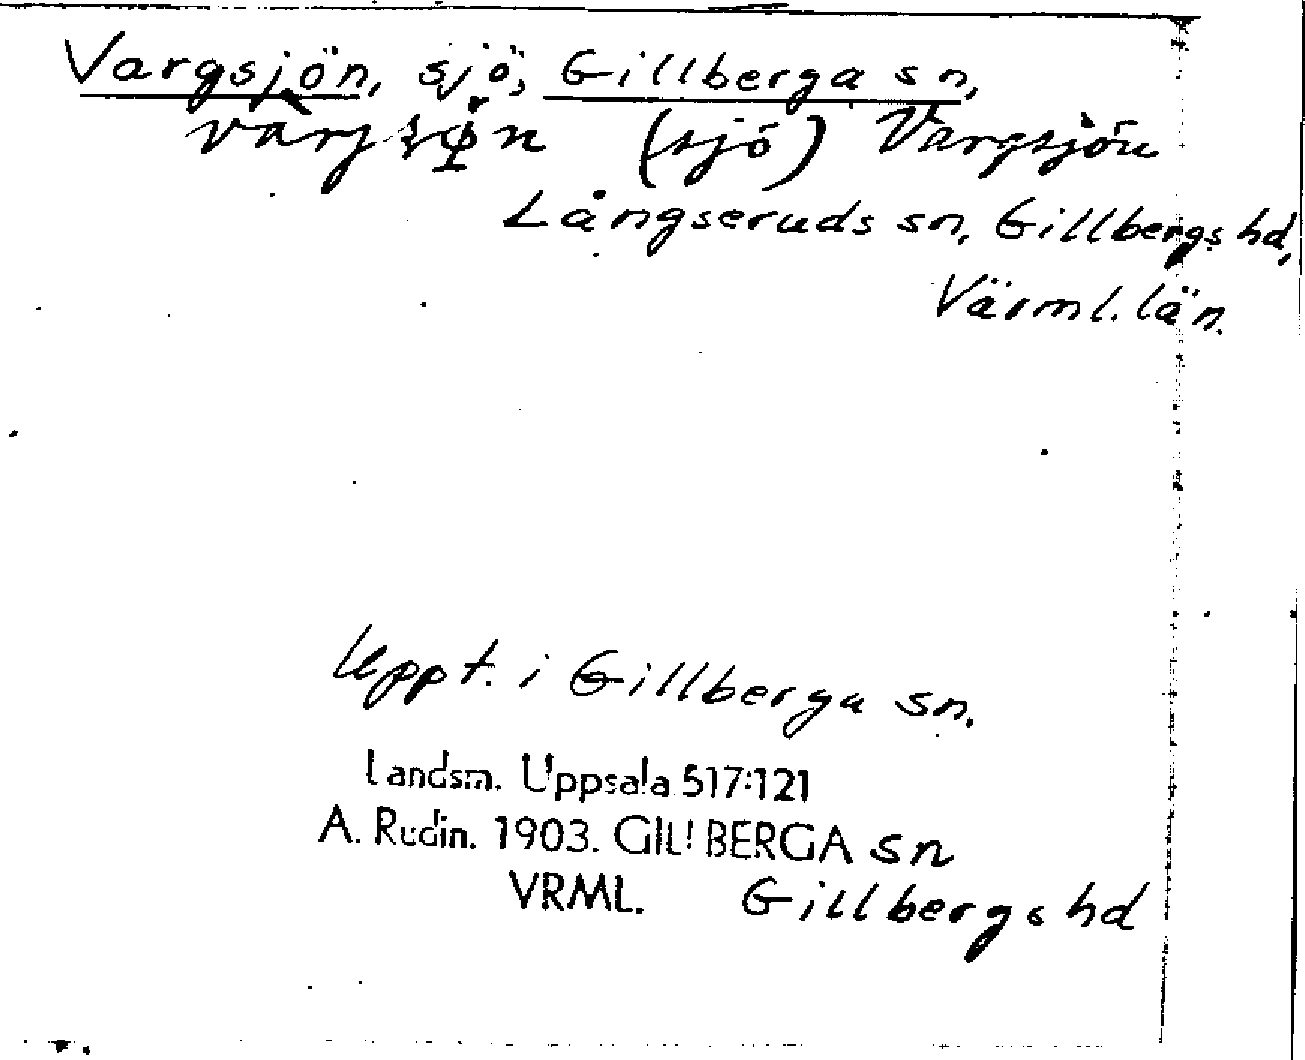 Vargsjön, sjö, Gillberga sn,
(sjö) Vargsjön
Långseruds sn, Gillbergs hd,
Värml. län.
Uppt. i Gillberga sn.
Landsm. Uppsala 517:121
A. Rudin. 1903. GILLBERGA sn
VRML. Gillbergs hd